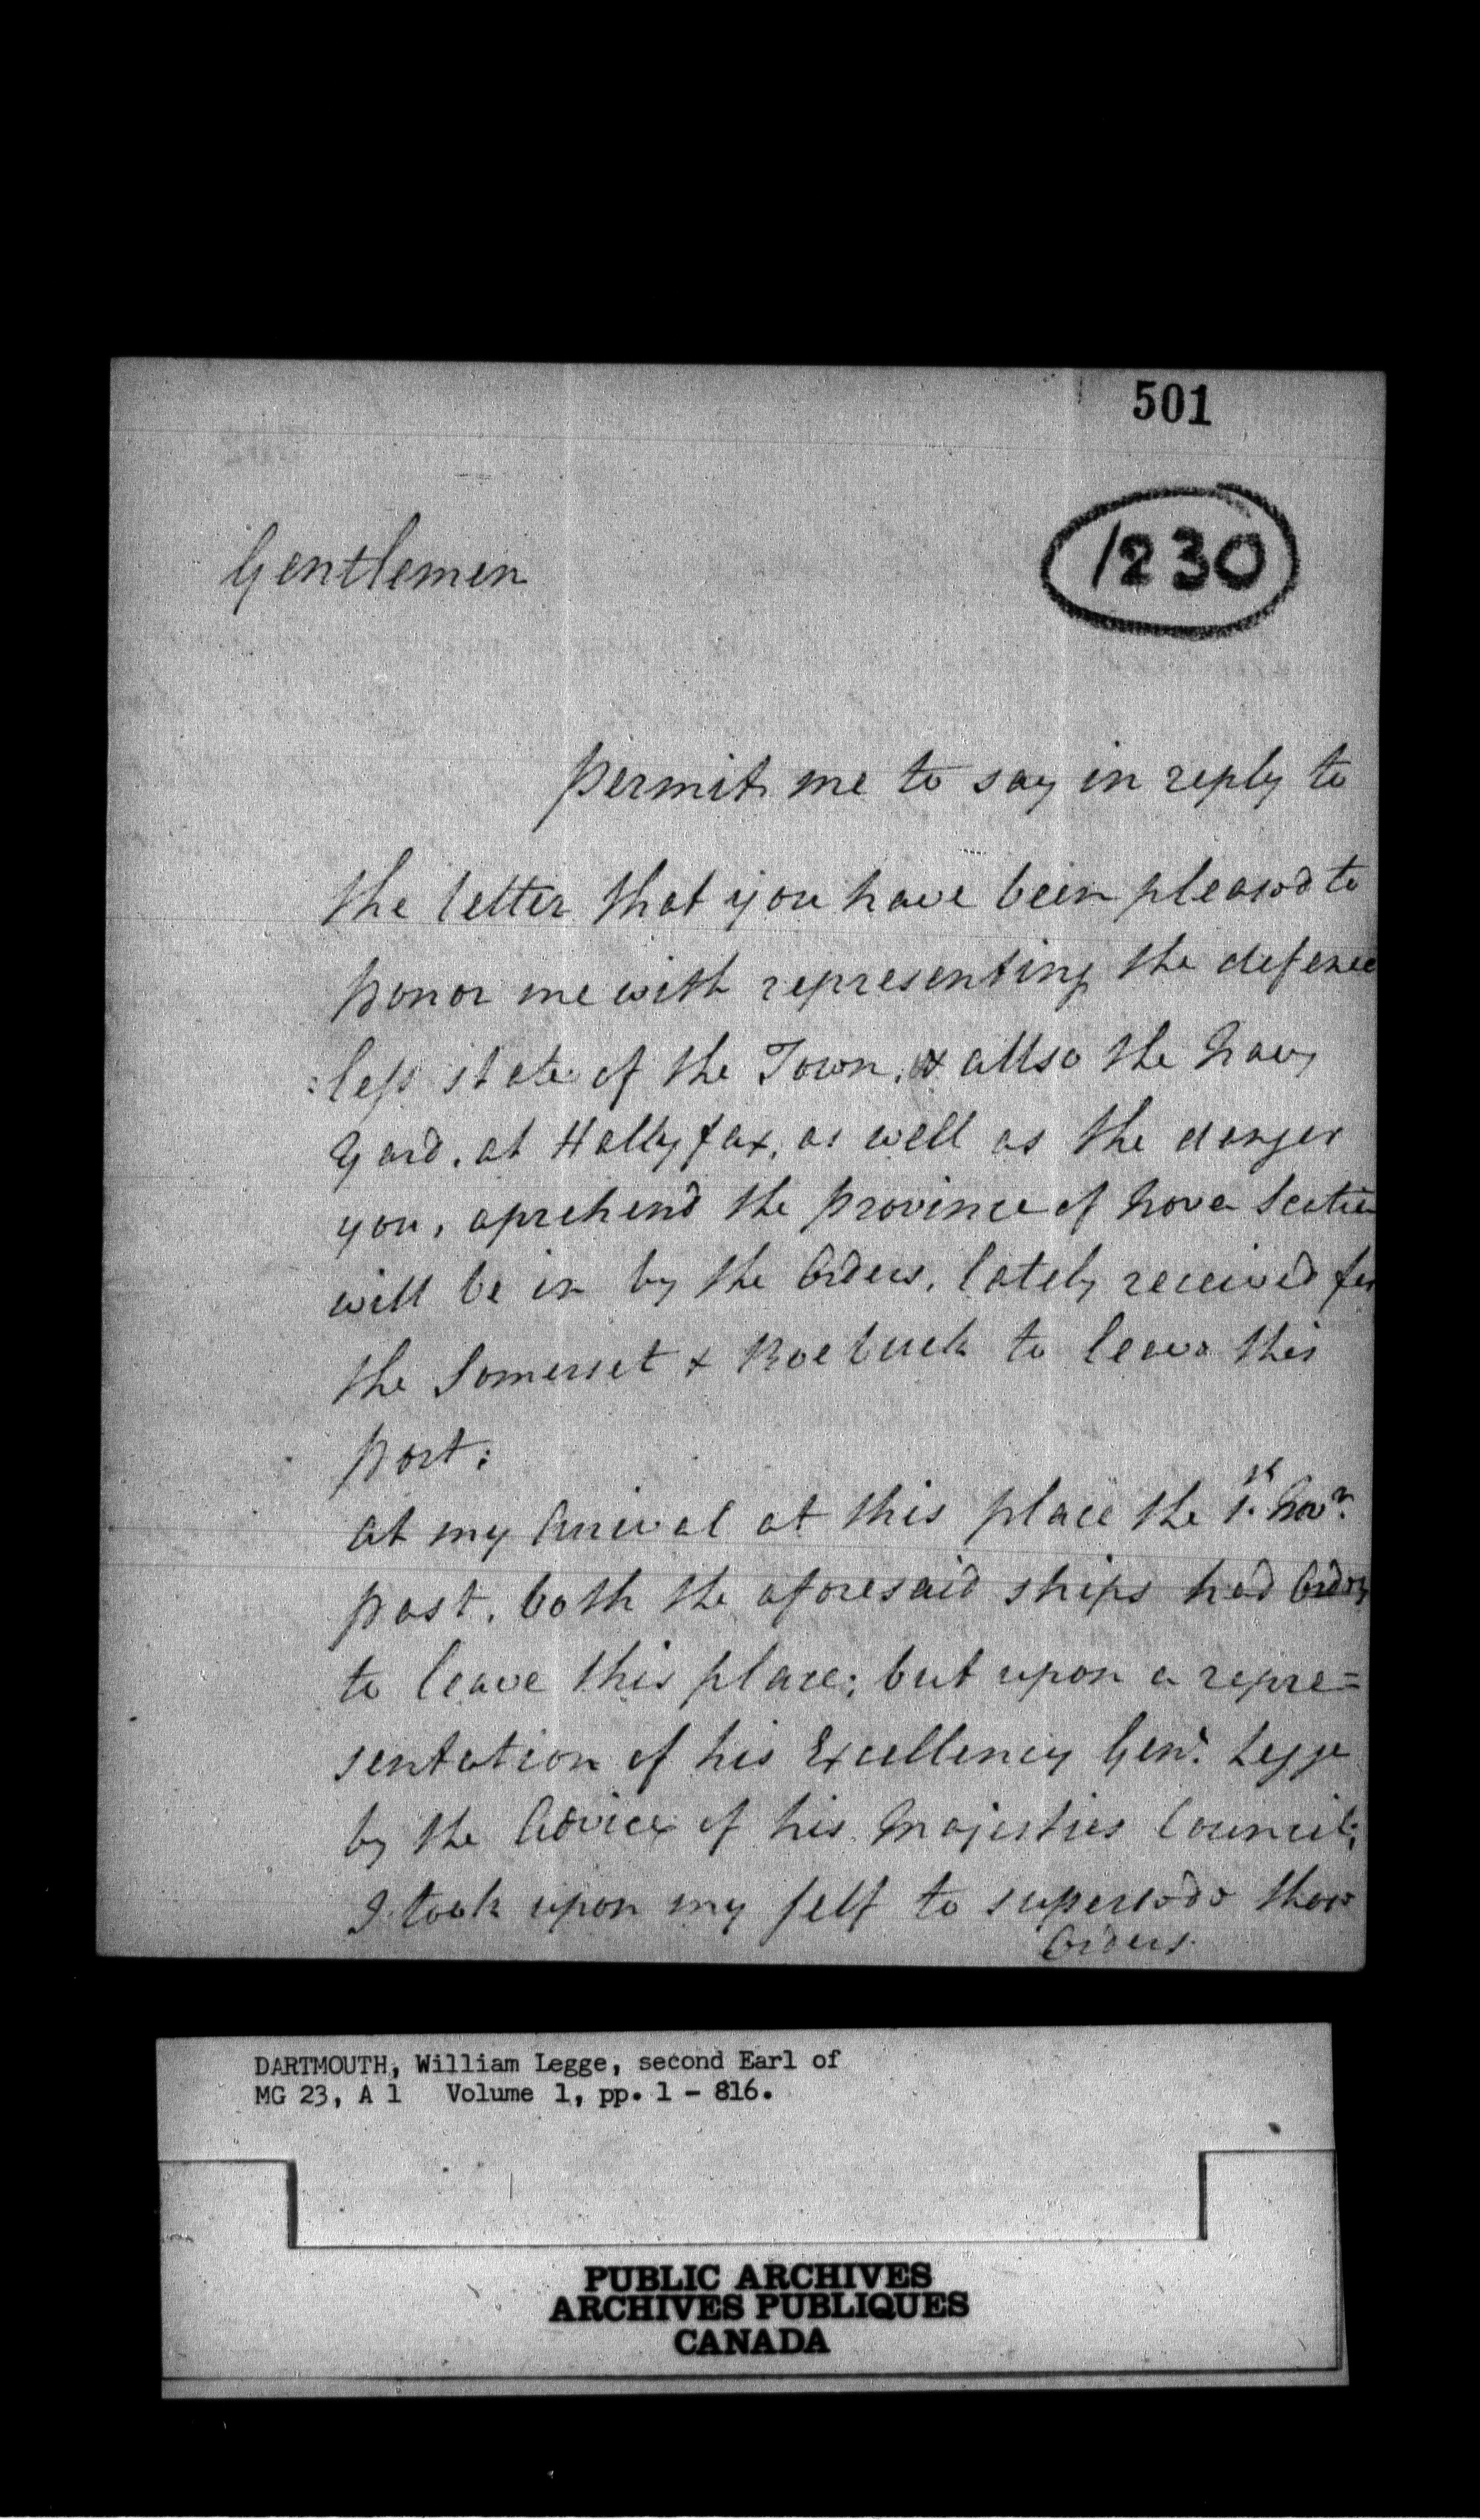 501
1230
Gentlemen
permit me to say in reply to
the letter that you have been pleasd to
honor me with representing the defence
:less state of the Town, & allso the Navy
Yard, at Hallyfax, as well as the danger
you, aprehend the province of Nova Scotia
will be in by the Orders, lately received for
the Somerset & Roebuck to leave this
port:
at my Arrival at this place the 1st Novr.
past, both the aforesaid ships had Orders
to leave this place; but upon a repre=
sentation of his Excellency Genl. Legge
by the Advice of his Majesties Council;
I took upon my self to supersede those
Orders.
DARTMOUTH, William Legge, second Earl of
MG 23, A 1 Volume 1, pp. 1 - 816.
PUBLIC ARCHIVES
ARCHIVES PUBLIQUES
CANADA